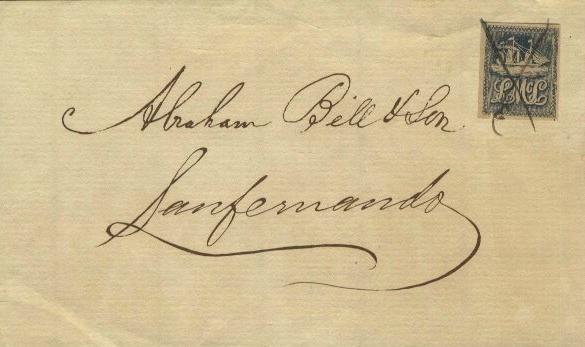 LMcL
Abraham Bell & Son
Sanfernando